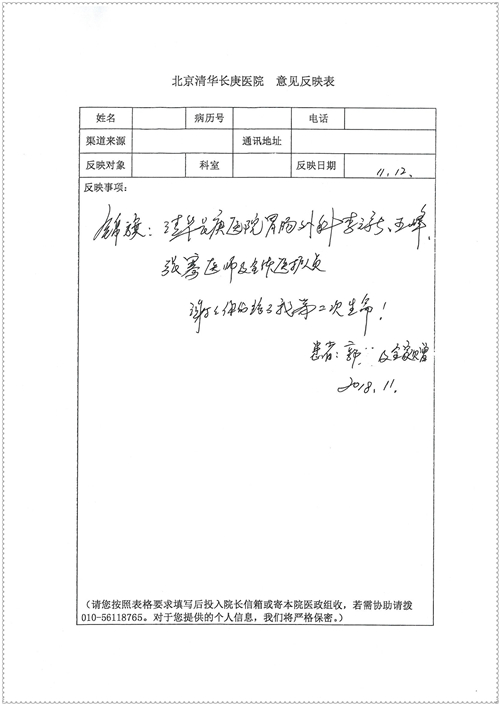 北京清华长庚医院 意见反映表
姓名 病历号 电话
渠道来源 通讯地址
反映对象 科室 反映日期 11.12.
反映事项:
锦旗:清华长庚医院胃肠外科李元新、王峰、
张骞医师及全体医护员
谢谢你们给了我第二次生命!
患者:郭 及全家赠
2018.11.
(请您按照表格要求填写后投入院长信箱或寄本院医政组收,若需协助请拨
010-56118765。对于您提供的个人信息,我们将严格保密。)